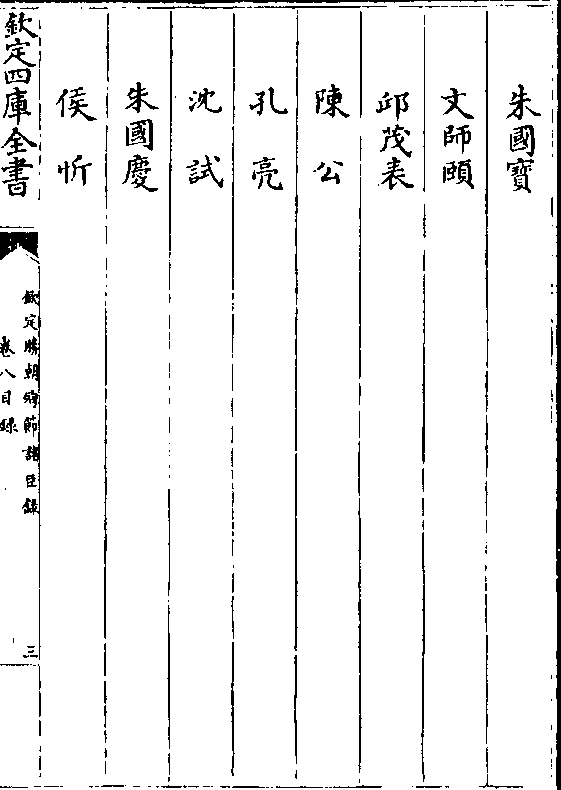 朱國寶
文師頤
邱茂表
陳公
孔亮
沈試
朱國慶
侯忻
欽定四庫全書
欽定勝朝殉節諸臣錄
卷八目録
三